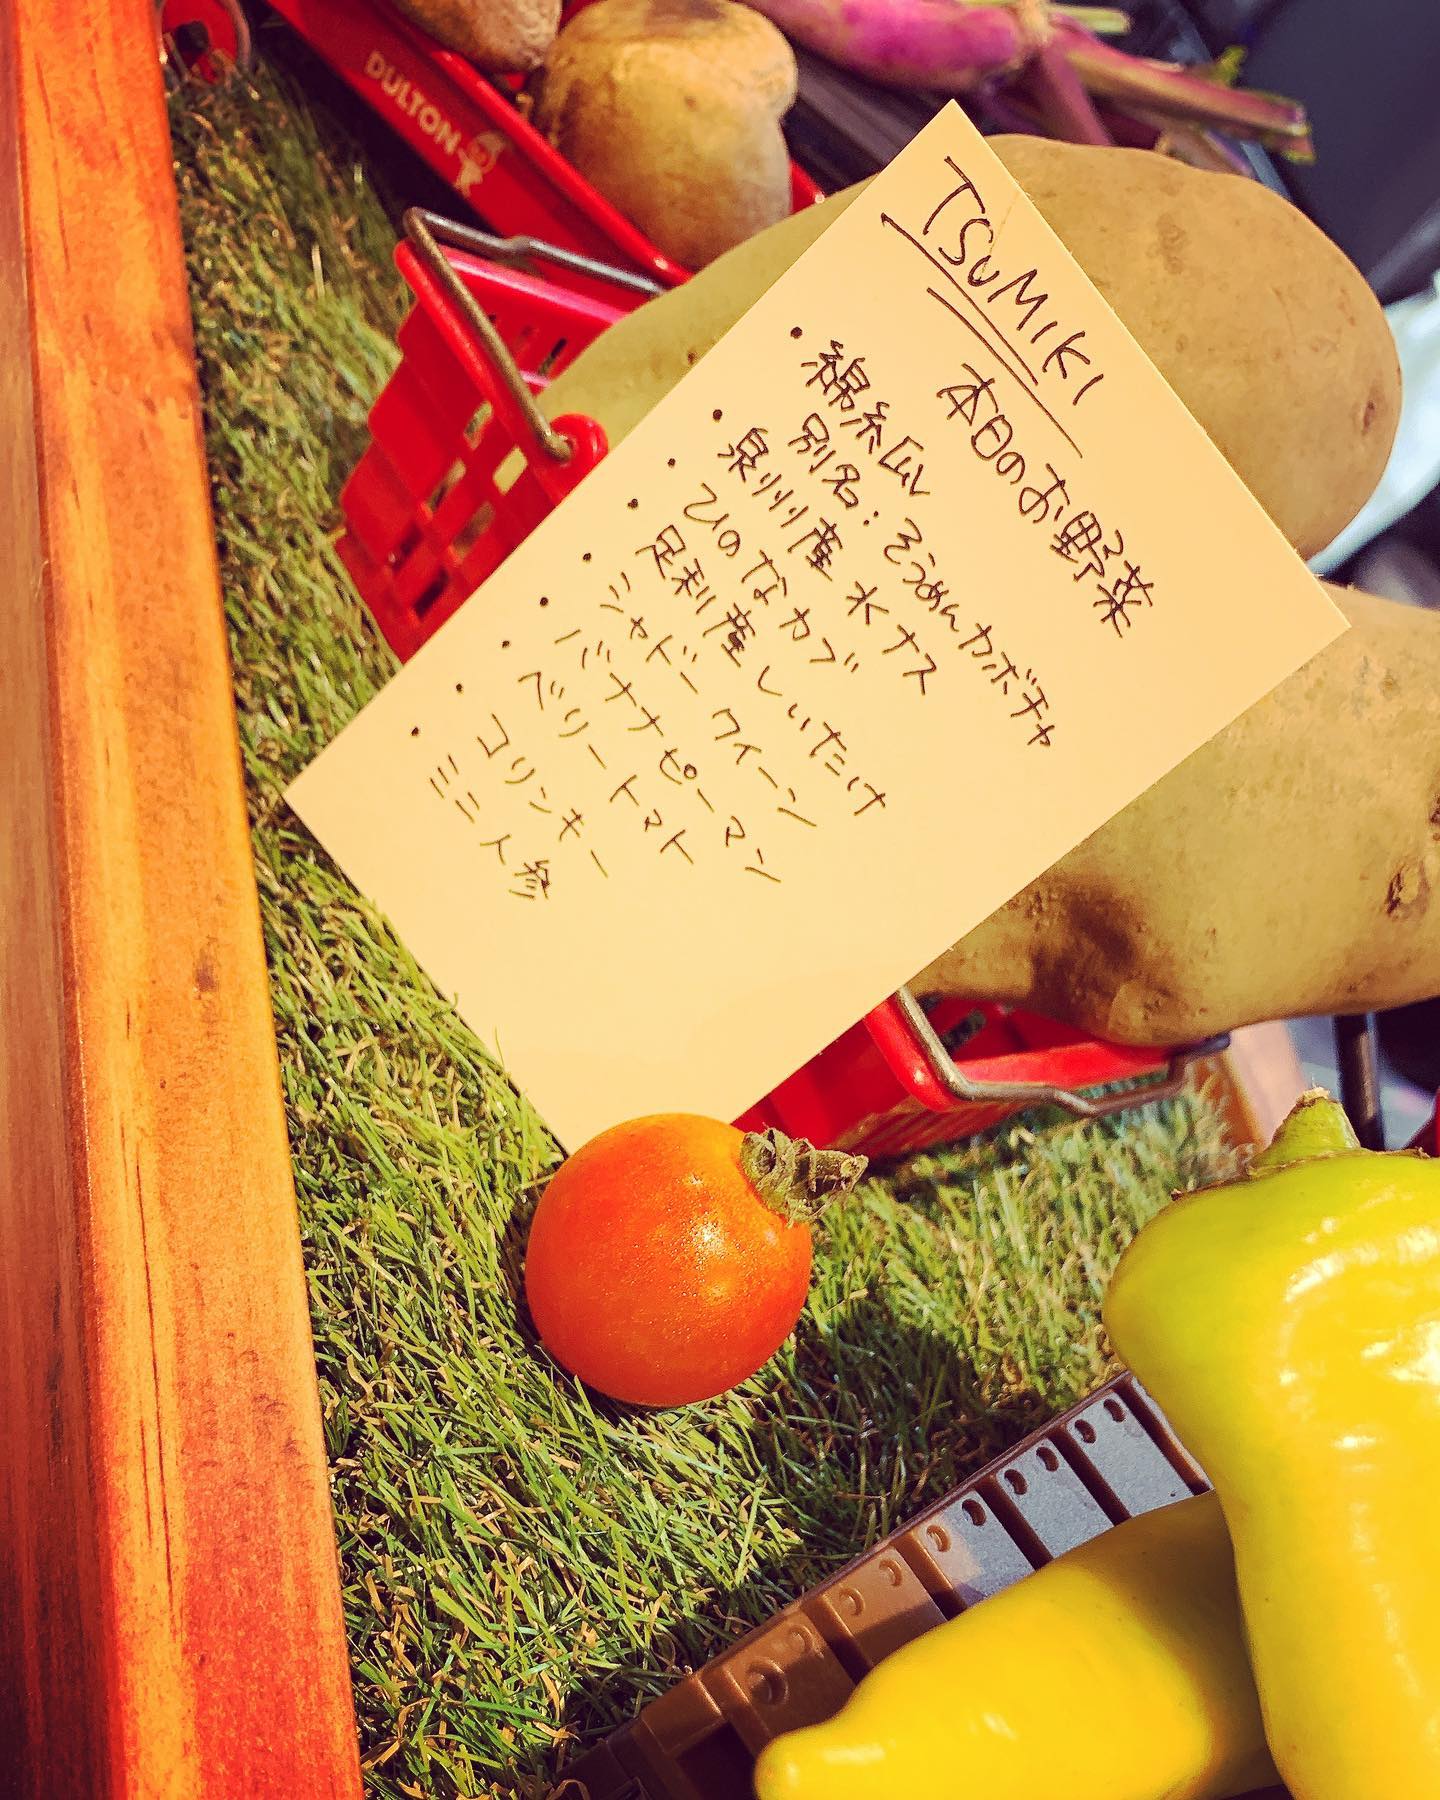 DULTON
TSUMIKI
本日のお野菜
・綿糸瓜
別名：そうめんカボチャ
・泉州産水ナス
・ひのなカブ
・足利産しいたけ
・シャドークイーン
・バナナピーマン
・ベリートマト
・コリンキー
・ミニ人参